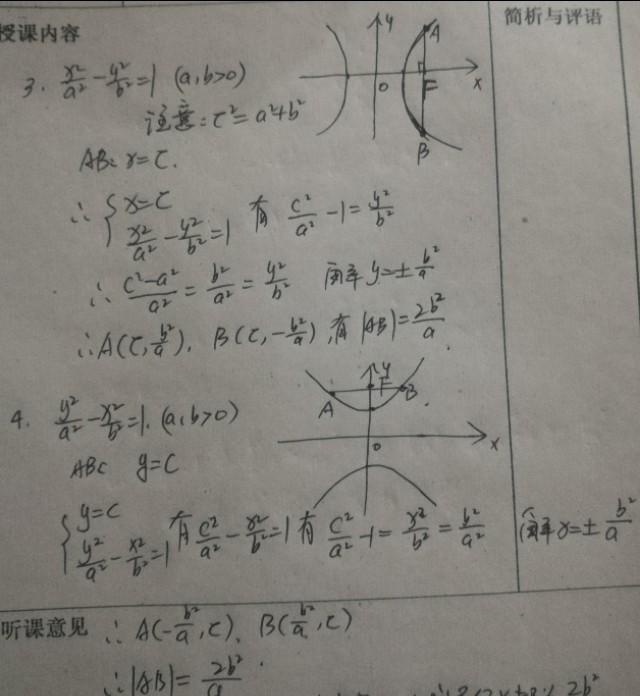 授课内容
简析与评语
3. x²/a² - y²/b² = 1 (a,b>0)
y
A
O
F
x
B
注意: c² = a²+b²
AB: x=c.
∴ { x=c
x²/a² - y²/b² = 1 有 c²/a² - 1 = y²/b²
∴ (c²-a²)/a² = b²/a² = y²/b² 解 y=±b²/a
∴ A(c, b²/a), B(c, -b²/a), 有 |AB| = 2b²/a.
4. y²/a² - x²/b² = 1. (a,b>0)
y
A
F
B.
O
x
AB: y=c
{ y=c
y²/a² - x²/b² = 1 有 c²/a² - x²/b² = 1 有 c²/a² - 1 = x²/b² = b²/a² 解 x=±b²/a
听课意见
∴ A(-b²/a, c), B(b²/a, c)
∴ |AB| = 2b²/a.
2b²